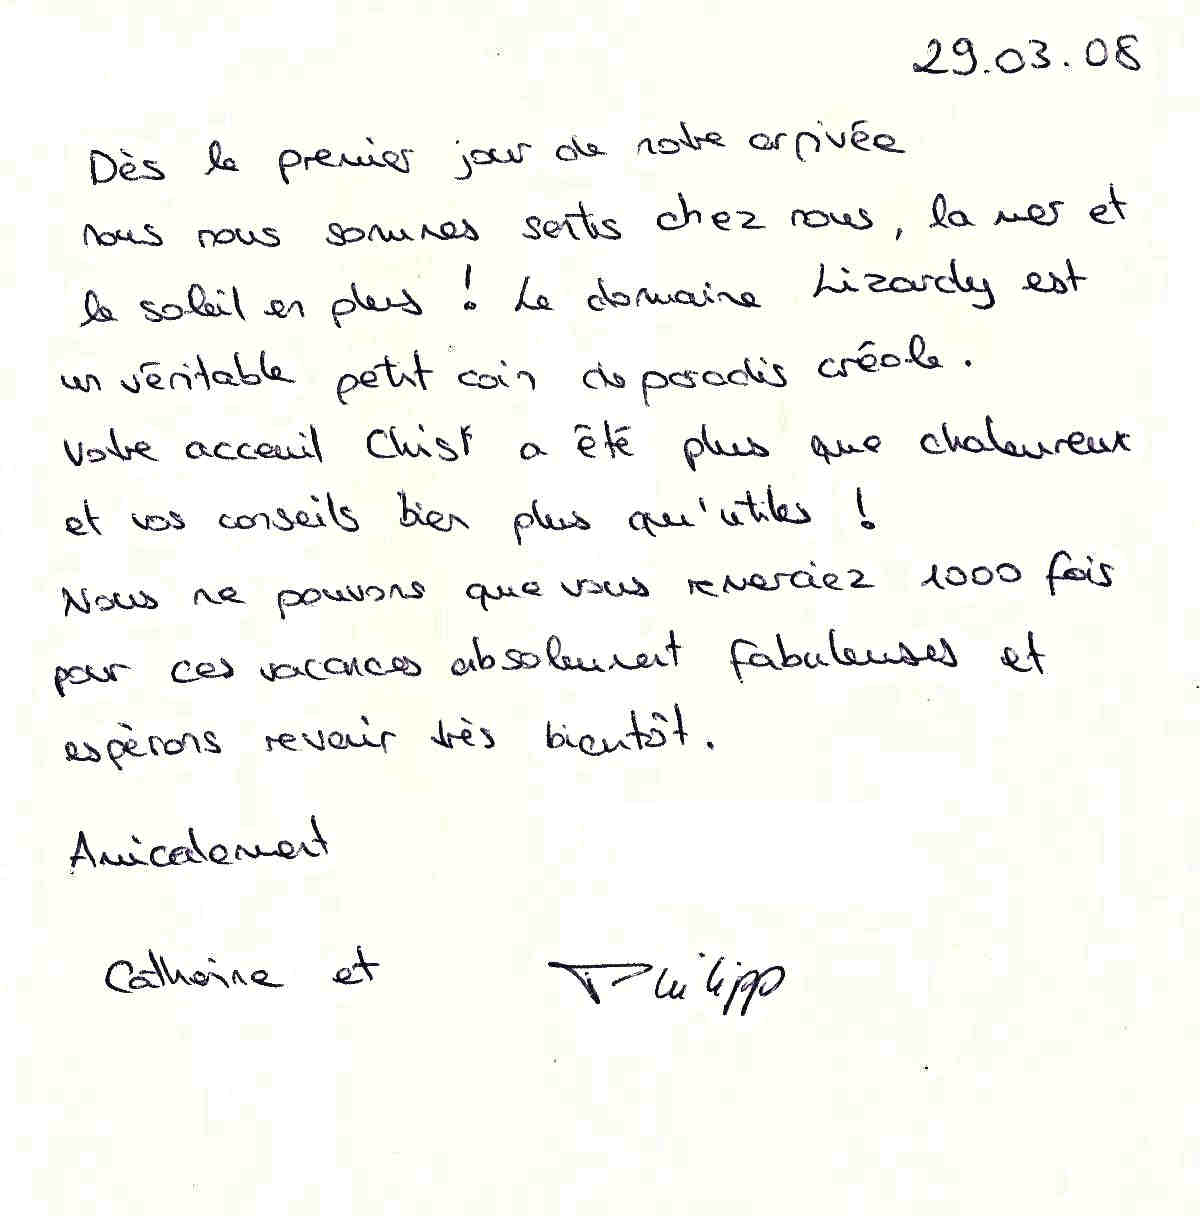 29.03.08
Dès le premier jour de notre arrivée
nous nous sommes sentis chez nous, la mer et
le soleil en plus ! Le domaine Lizardy est
un véritable petit coin de paradis créole.
Votre acceuil Christ a été plus que chaleureux
et vos conseils bien plus qu'utiles !
Nous ne pouvons que vous remerciez 1000 fois
pour ces vacances absolument fabuleuses et
espèrons revenir très bientôt.
Amicalement
Catherine et Philipp